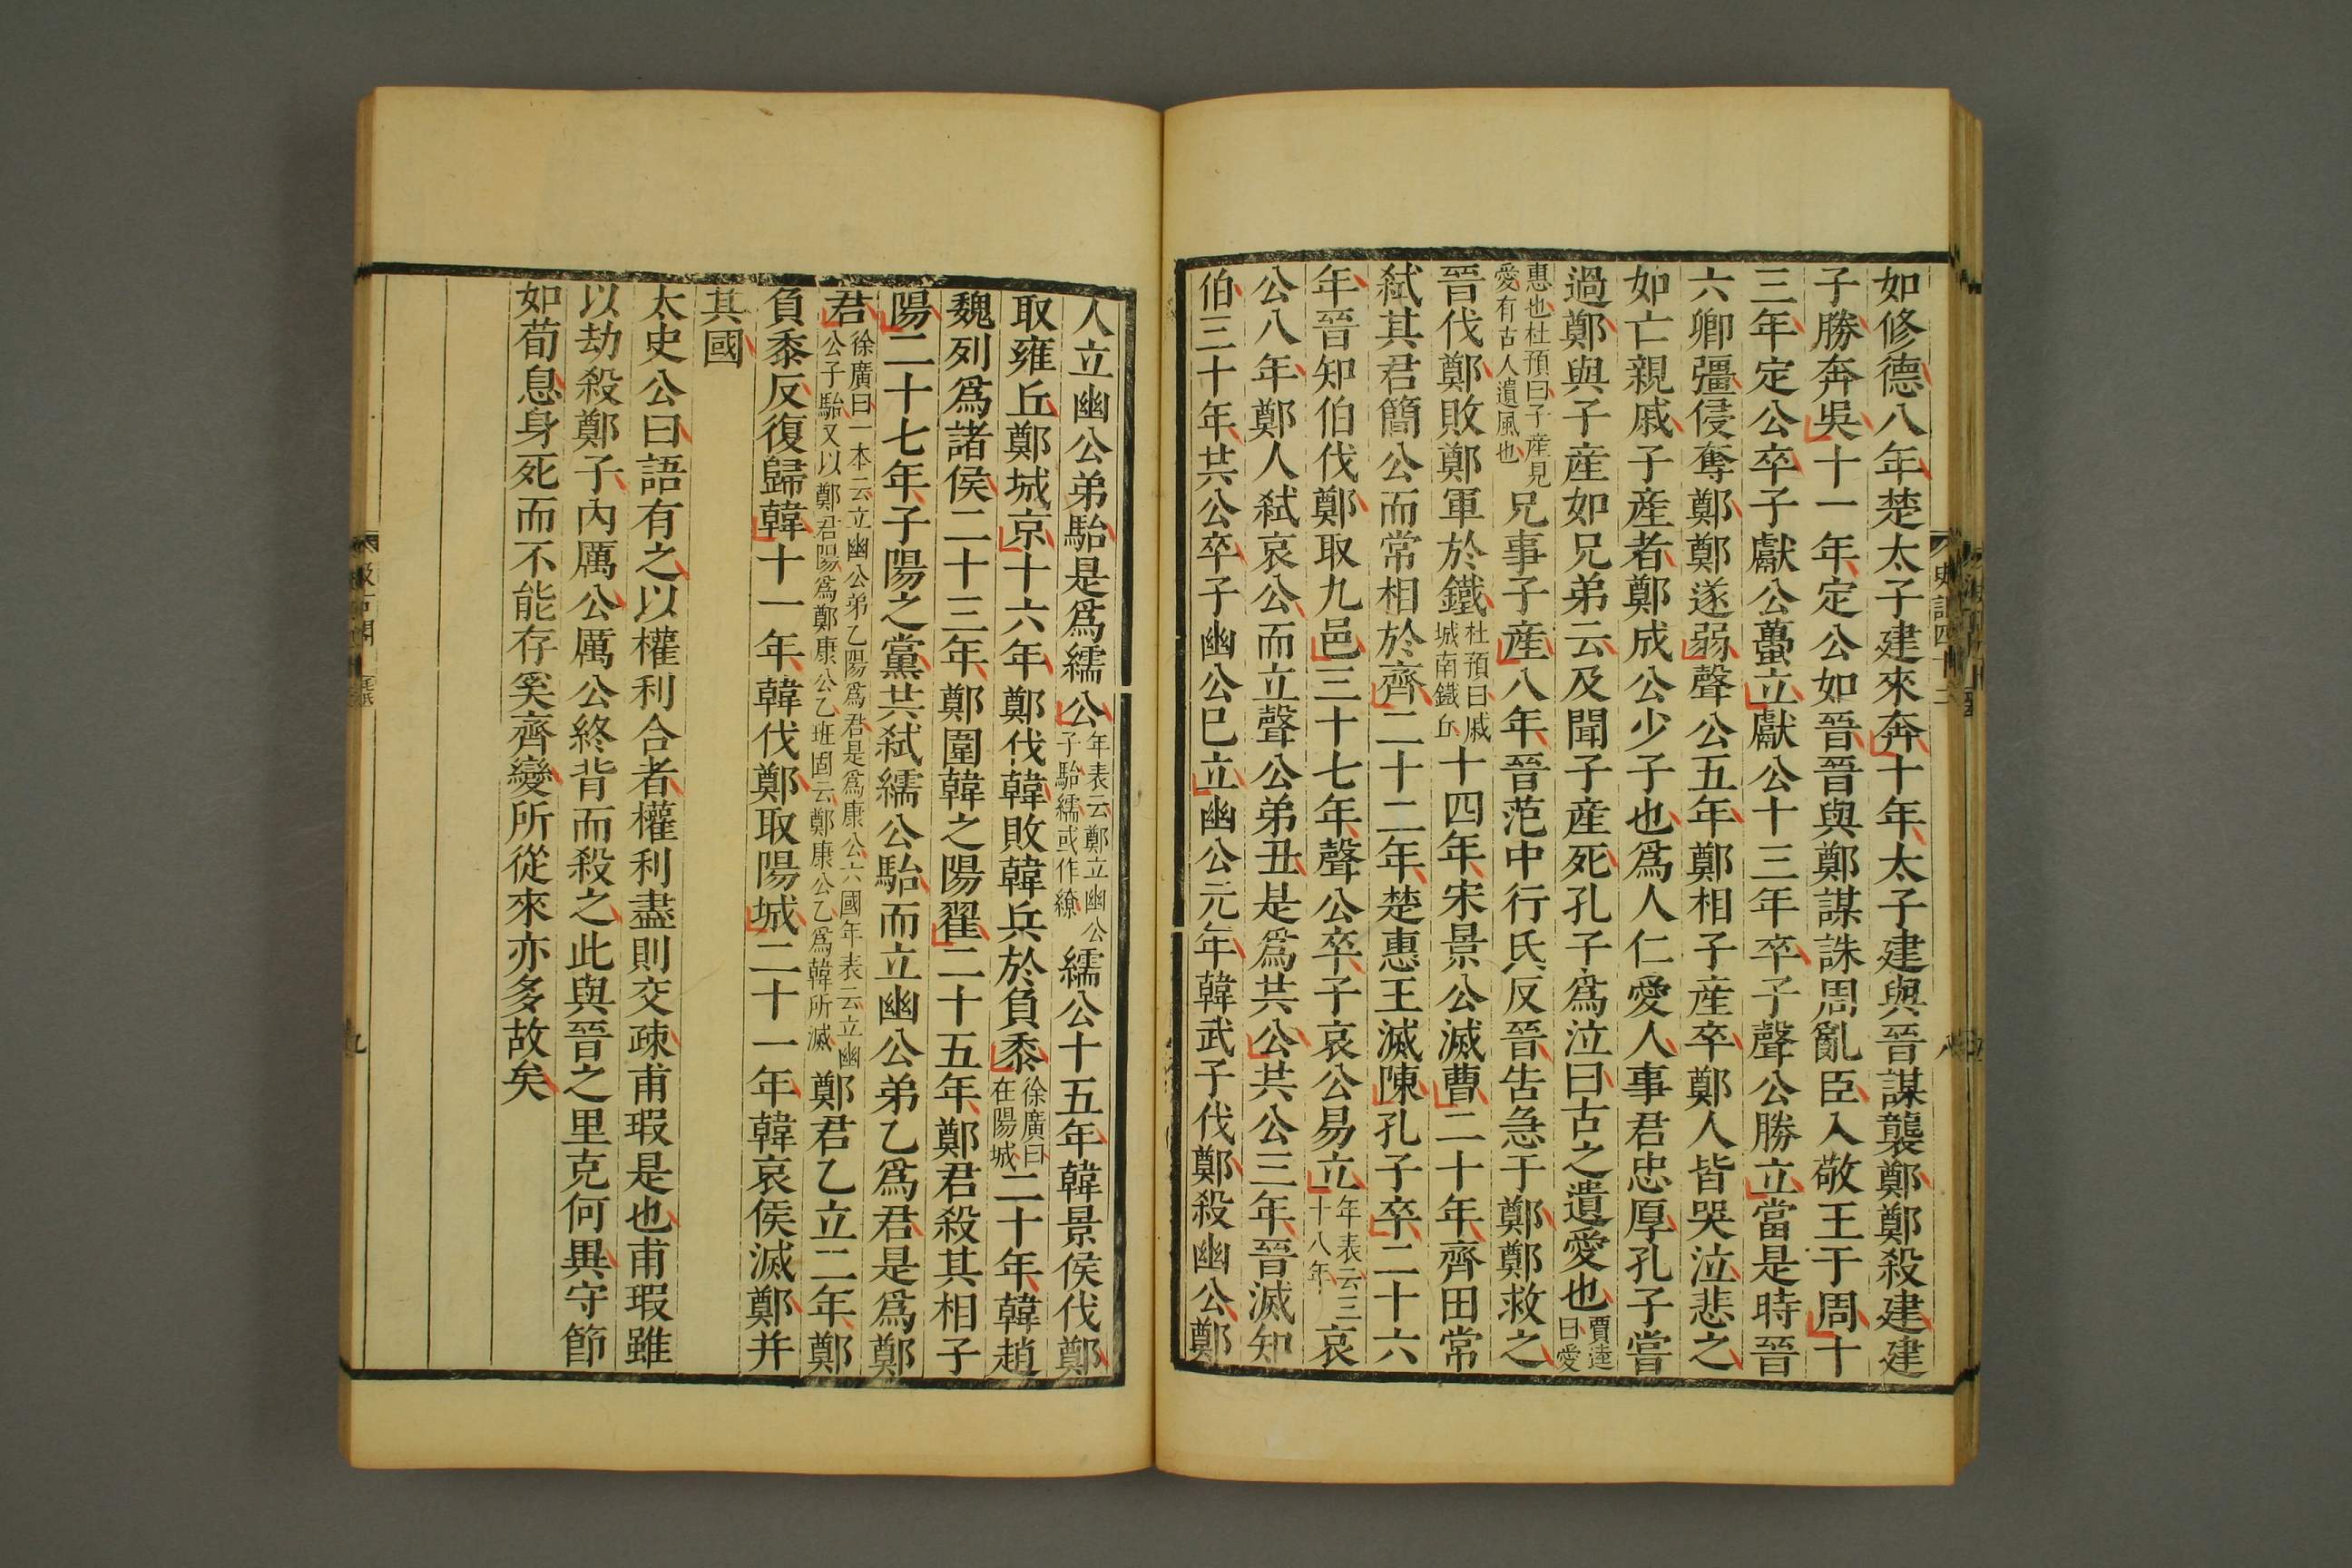 如修德八年楚太子建來奔十年太子建與晉謀襲鄭鄭殺建建
子勝奔吳十一年定公如晉晉與鄭謀誅周亂臣入敬王于周十
三年定公卒子獻公蠆立獻公十三年卒子聲公勝立當是時晉
六卿彊侵奪鄭鄭遂弱聲公五年鄭相子產卒鄭人皆哭泣悲之
如亡親戚子產者鄭成公少子也爲人仁愛人事君忠厚孔子嘗
過鄭與子產如兄弟云及聞子產死孔子爲泣曰古之遺愛也賈逵曰愛
惠也杜預曰子產見愛有古人遺風也兄事子產八年晉范中行氏反晉告急于鄭鄭救之
晉伐鄭敗鄭軍於鐵杜預曰戚城南鐵丘十四年宋景公滅曹二十年齊田常
弑其君簡公而常相於齊二十二年楚惠王滅陳孔子卒二十六
年晉知伯伐鄭取九邑三十七年聲公卒子哀公易立年表云三十八年哀
公八年鄭人弑哀公而立聲公弟丑是爲共公共公三年晉滅知
伯三十年共公卒子幽公巳立幽公元年韓武子伐鄭殺幽公鄭
史記四十二
八
人立幽公弟駘是爲繻公年表云鄭立幽公子駘繻或作繚繻公十五年韓景侯伐鄭
取雍丘鄭城京十六年鄭伐韓敗韓兵於負黍徐廣曰在陽城二十年韓趙
魏列爲諸侯二十三年鄭圍韓之陽翟二十五年鄭君殺其相子
陽二十七年子陽之黨共弑繻公駘而立幽公弟乙爲君是爲鄭
君徐廣曰一本云立幽公弟乙陽爲君是爲康公六國年表云立幽公子駘又以鄭君陽爲鄭康公乙班固云鄭康公乙爲韓所滅鄭君乙立二年鄭
負黍反復歸韓十一年韓伐鄭取陽城二十一年韓哀侯滅鄭并
其國
太史公曰語有之以權利合者權利盡則交疎甫瑕是也甫瑕雖
以劫殺鄭子內厲公厲公終背而殺之此與晉之里克何異守節
如荀息身死而不能存奚齊變所從來亦多故矣
九